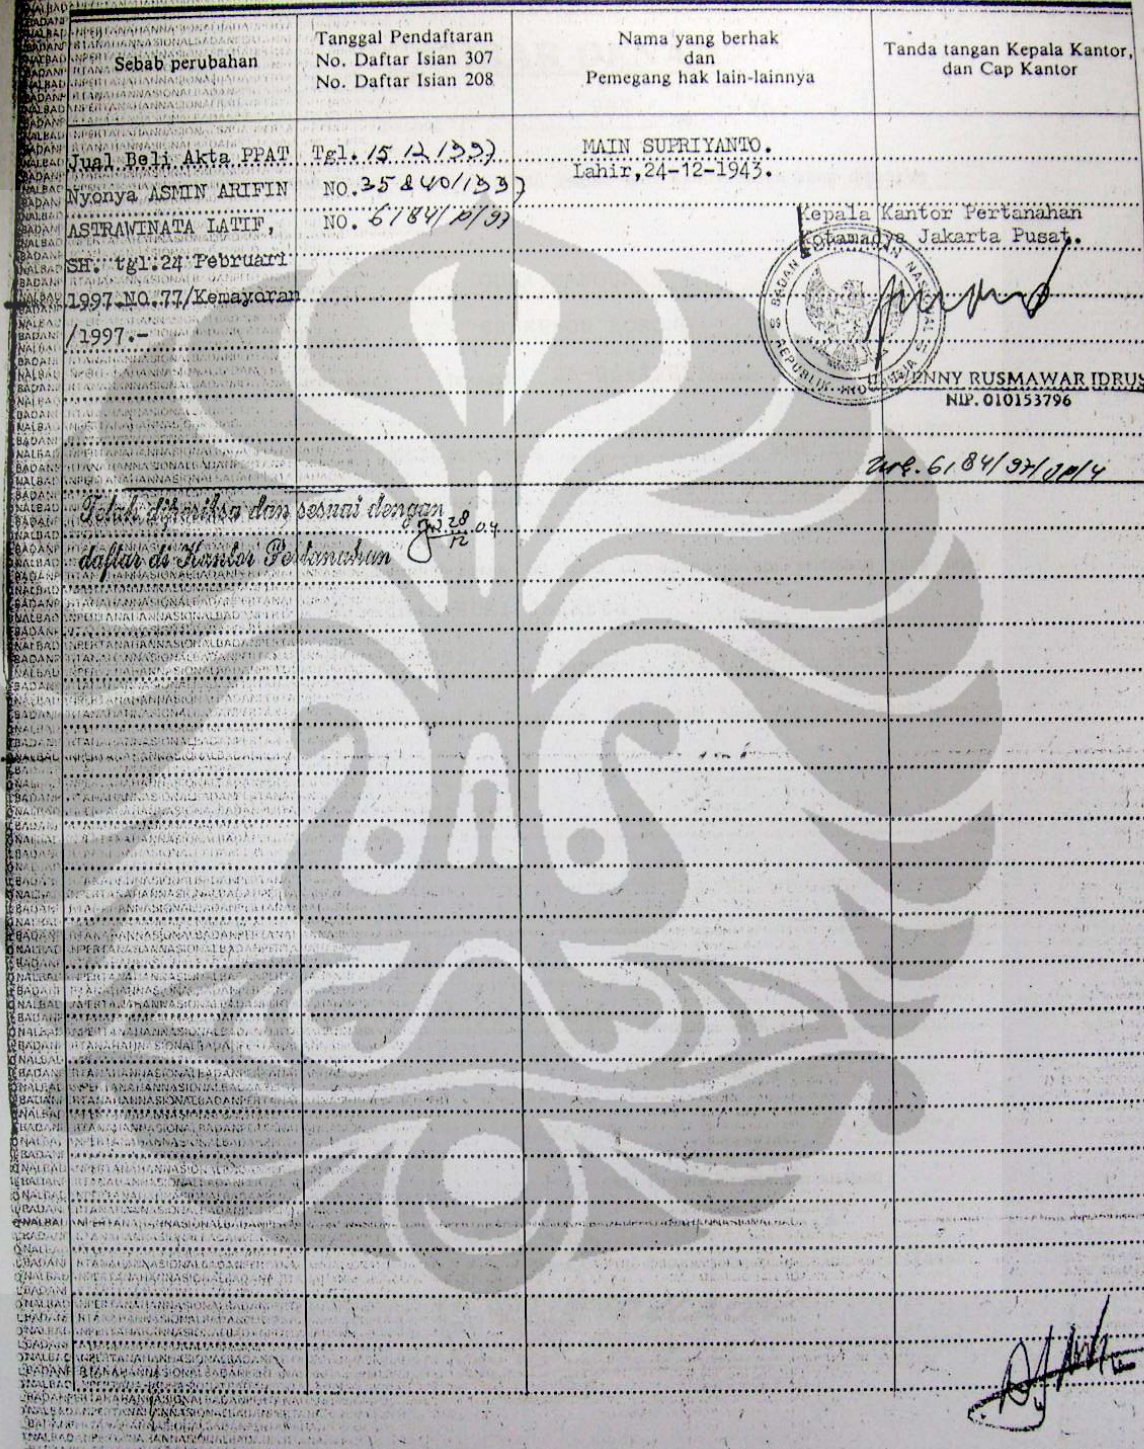 Sebab perubahan
Tanggal Pendaftaran
No. Daftar Isian 307
No. Daftar Isian 208
Nama yang berhak
dan
Pemegang hak lain-lainnya
Tanda tangan Kepala Kantor,
dan Cap Kantor
Jual Beli Akta PPAT
Nyonya ASMIN ARIFIN
ASTRAWINATA LATIF,
SH. tgl.24 Pebruari
1997.NO.77/Kemayoran
/1997.-
Tgl. 15 12 1997
NO. 35840/1997
NO. 6184/p/97
MAIN SUPRIYANTO.
Lahir,24-12-1943.
Kepala Kantor Pertanahan
Kotamadya Jakarta Pusat.
BADAN PERTANAHAN NASIONAL
REPUBLIK INDONESIA
ENNY RUSMAWAR IDRUS
NIP. 010153796
Telah diperiksa dan sesuai dengan
daftar di Kantor Pertanahan